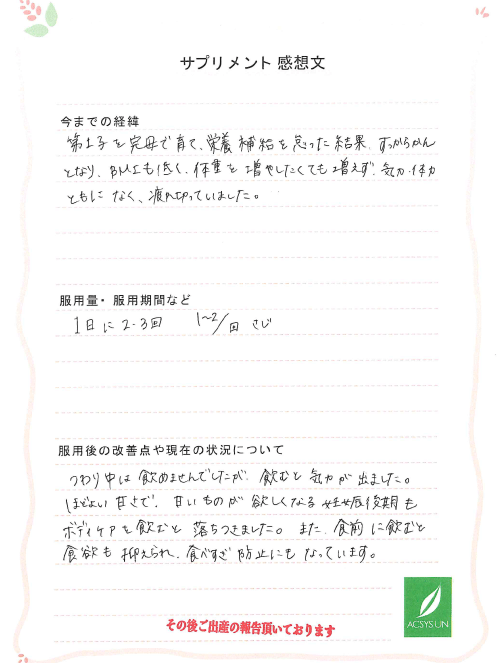 サプリメント 感想文
今までの経緯
第1子を完母で育て、栄養補給を怠った結果、すっからかん
となり、BMIも低く、体重を増やしたくても増えず、気力・体力
ともになく、疲れ切っていました。
服用量・服用期間など
1日に2・3回 1~2/回 さじ
服用後の改善点や現在の状況について
つわり中は飲めませんでしたが、飲むと気力が出ました。
ほどよい甘さで、甘いものが欲しくなる妊娠後期も
ボディケアを飲むと落ちつきました。また、食前に飲むと
食欲も抑えられ、食べすぎ防止にもなっています。
その後ご出産の報告頂いております
ACSYS UN